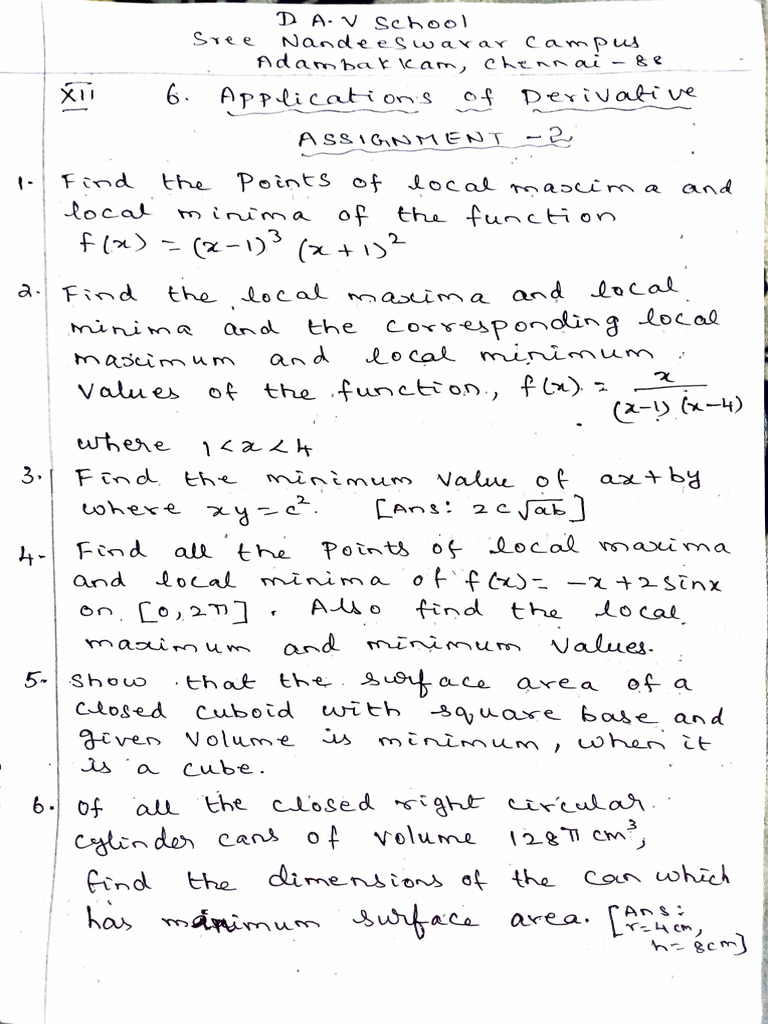 D A.V School
Sree Nandeeswarar Campus
Adambakkam, Chennai - 88
XII 6. Applications of Derivative
ASSIGNMENT - 2
1. Find the points of local maxima and
local minima of the function
f(x) = (x-1)³ (x+1)²
2. Find the local maxima and local
minima and the corresponding local
maximum and local minimum
values of the function, f(x) = x/((x-1)(x-4))
where 1<x<4
3. Find the minimum value of ax+by
where xy=c². [Ans: 2c√ab]
4. Find all the points of local maxima
and local minima of f(x)= -x+2sinx
on [0,2π]. Also find the local
maximum and minimum values.
5. Show that the surface area of a
closed cuboid with square base and
given volume is minimum, when it
is a cube.
6. Of all the closed right circular
cylinder cans of volume 128π cm³,
find the dimensions of the can which
has minimum surface area. [Ans:
r=4cm,
h=8cm]